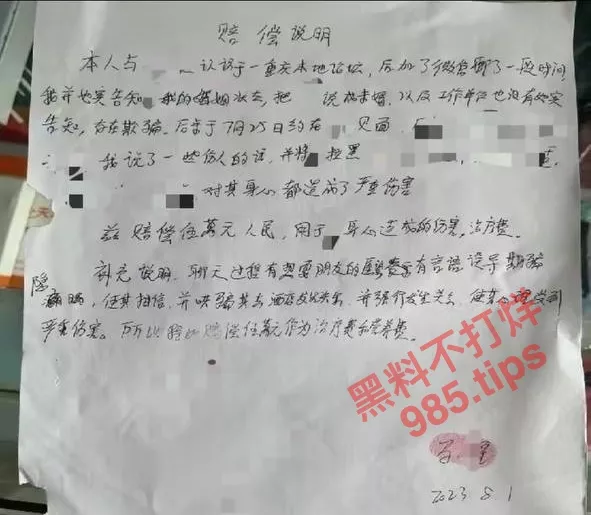 赔偿说明
本人与 认识于一重庆本地论坛，后加了微信聊了一段时间
我并也实告知 我的婚姻状态，把 说成未婚，以及工作单位也没有如实
告知，存在欺骗。后来于7月25日约在 见面，
我说了一些伤人的话，并将 拉黑
对其身心都造成了严重伤害
兹赔偿伍萬元人民，用于 身心造成的伤害。治疗费。
补充说明，聊天过程有想要朋友的 表示有言语误导期骗
隐瞒，使其相信，并哄骗其去酒店发生关系，并强行发生关系，使其 受到
严重伤害。所以 赔偿伍萬元作为治疗费和营养费。
黑料不打烊
985.tips
2023 8.1